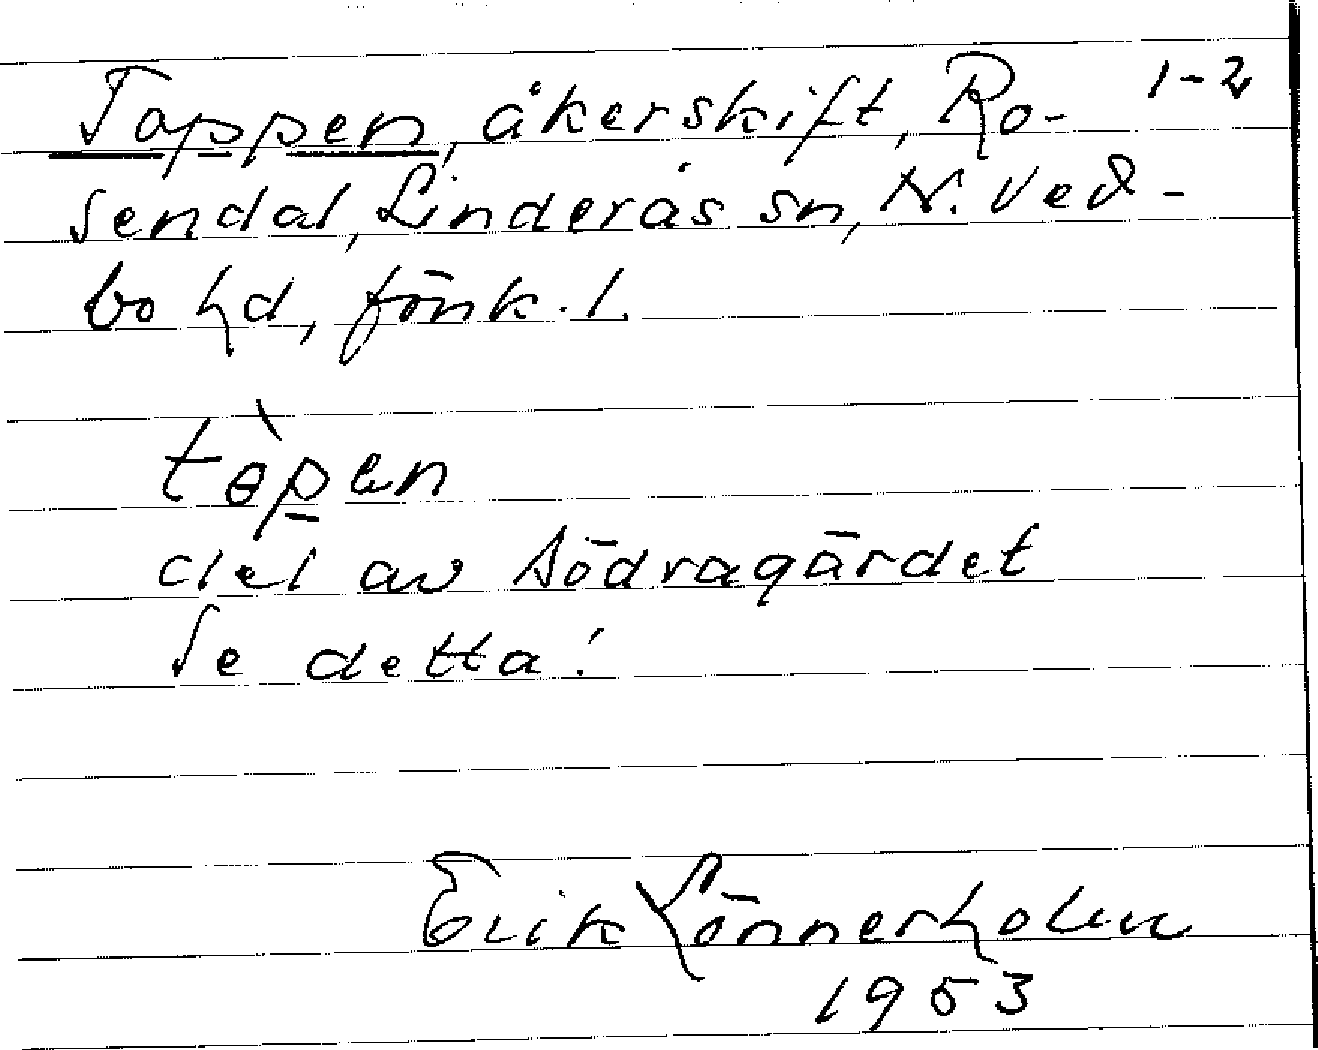 Tappen, åkerskift, Ro- 1-2
sendal, Linderås sn, N. Ved-
bo hd, Jönk. l.
tàpen
del av Södragärdet
Se detta!
Erik Lönnerholm
1953